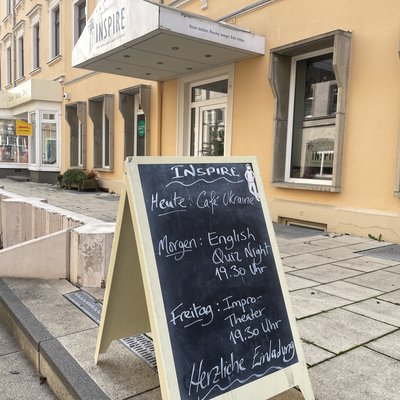 INSPIRE
INSPIRE
Heute: Cafe Ukraine
Morgen: English
Quiz Night
19.30 Uhr
Freitag: Impro-
Theater
19.30 Uhr
Herzliche Einladung